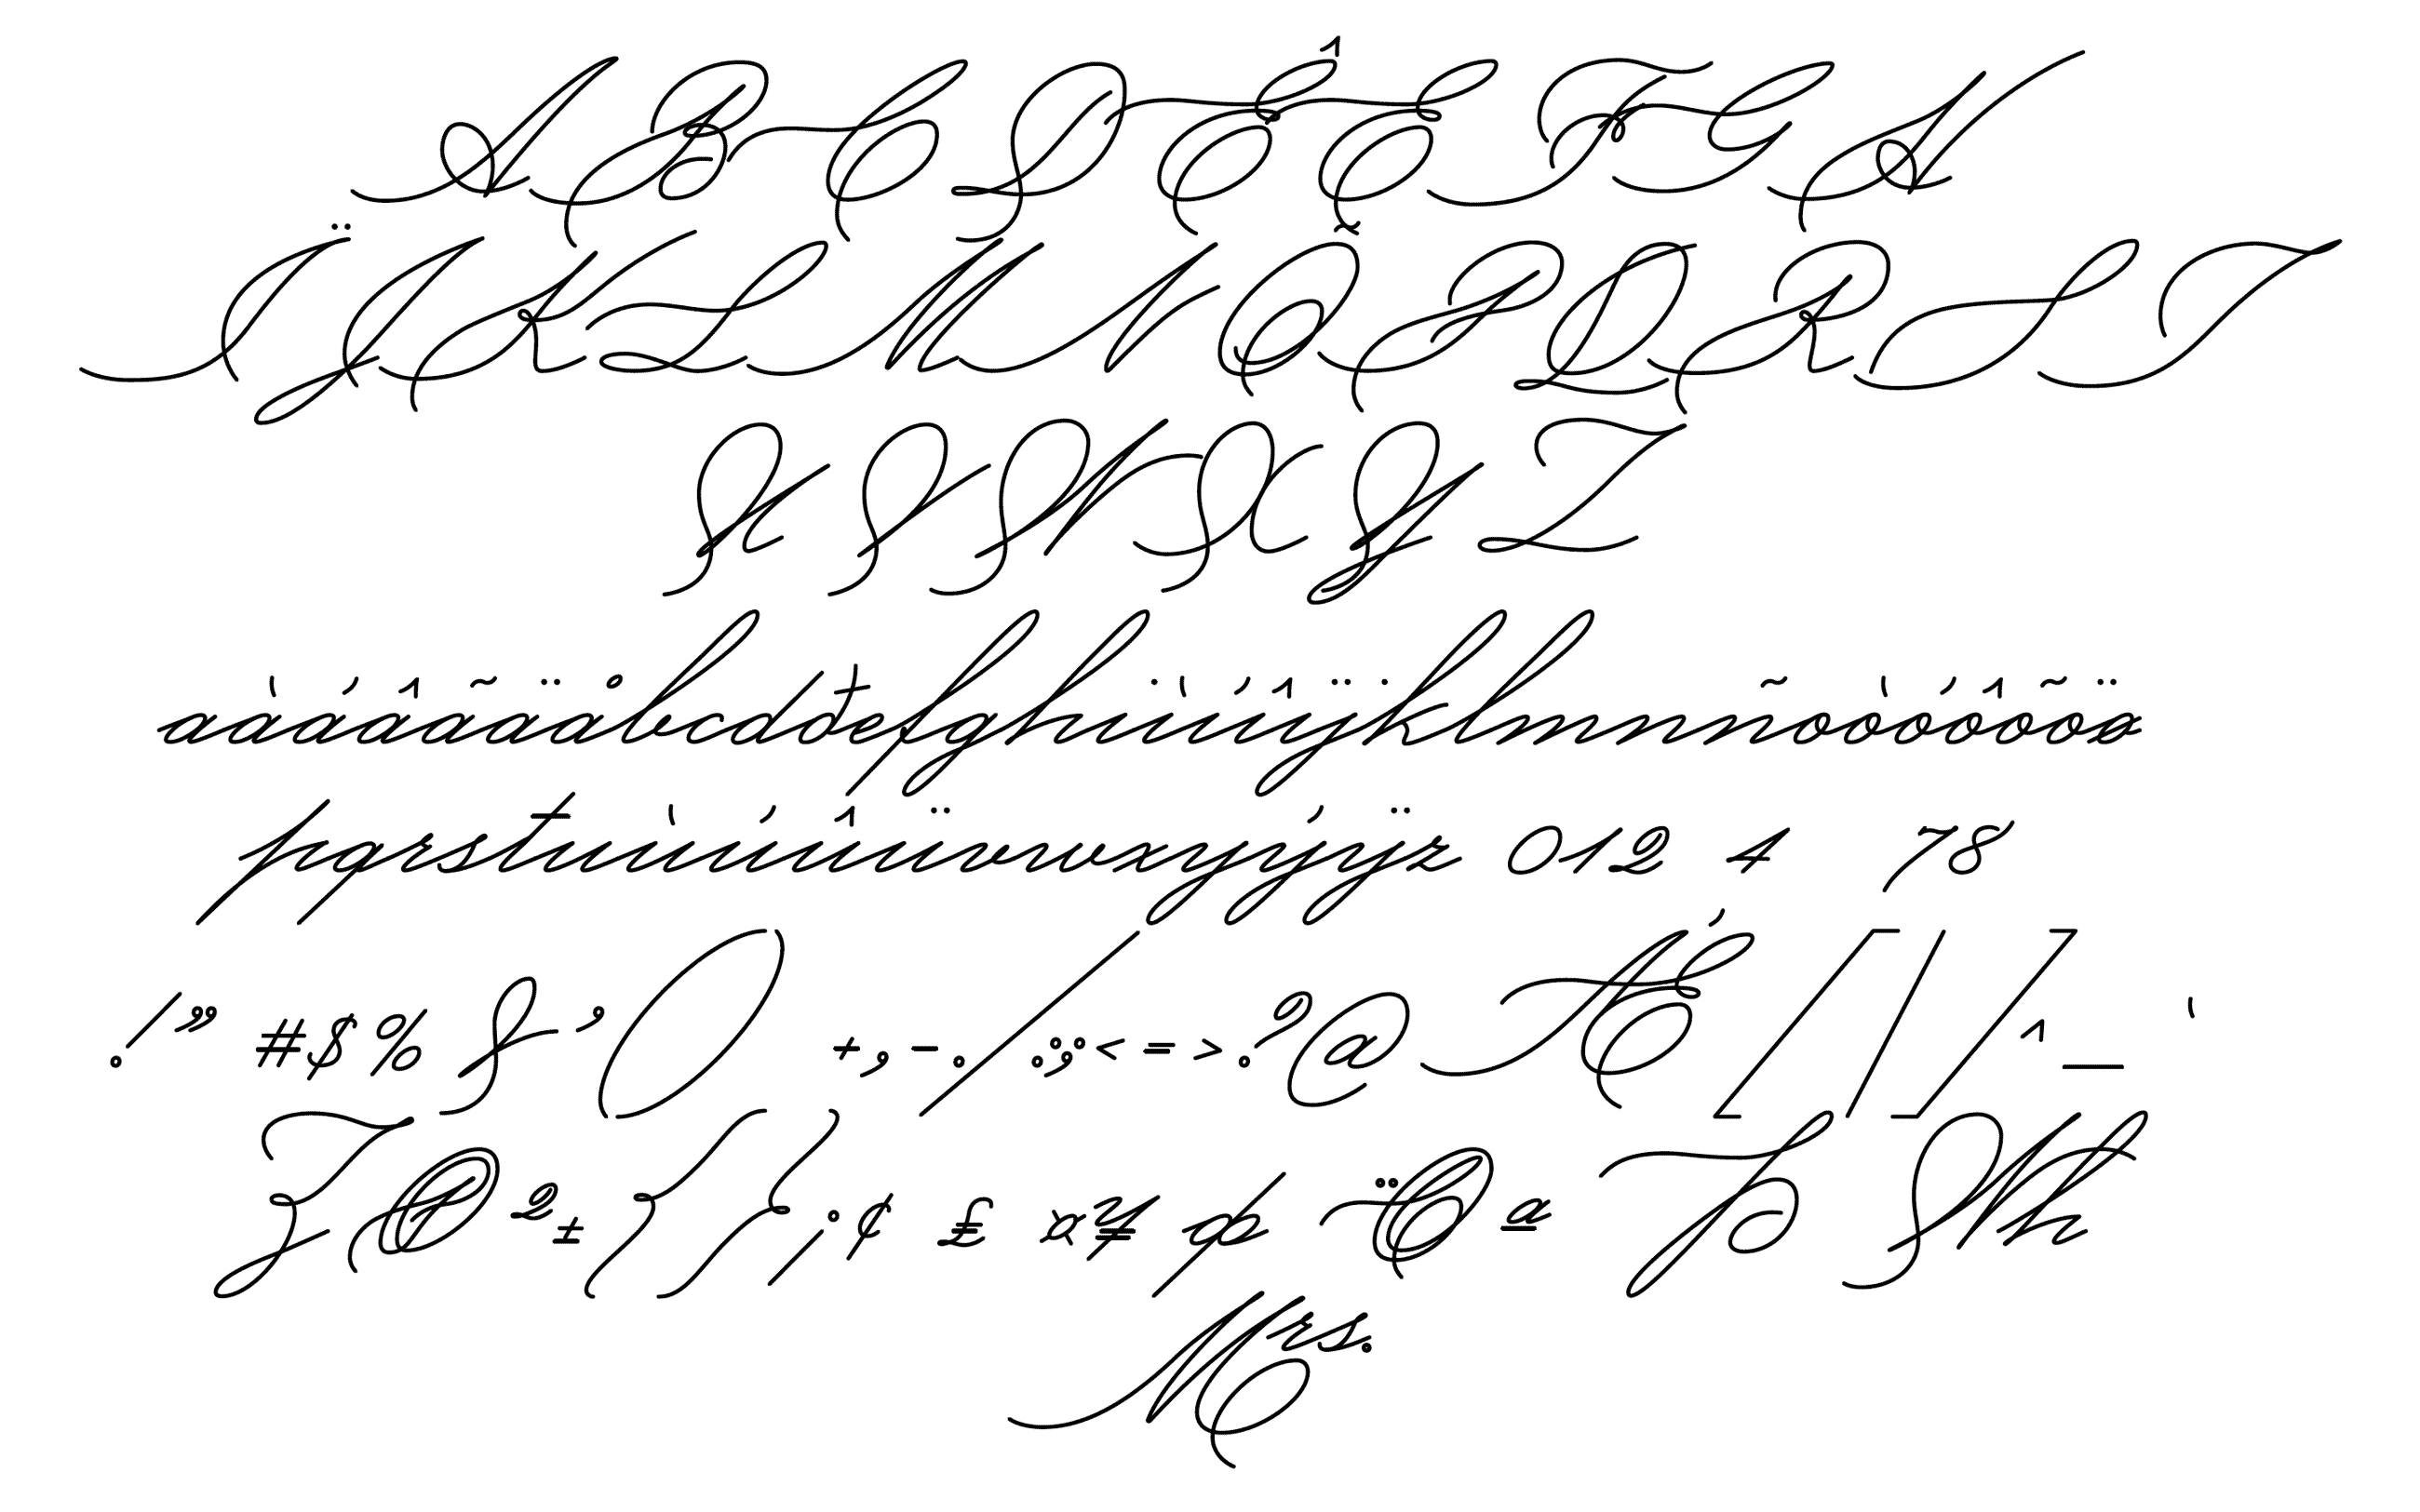 A B C D Ê E F G H
Ï J K L M N Õ P Q R S T
U V W X Y Z
aàáâãäåbcdðefghiìíîïjklmnñoòóôõöø
pqrstuùúûüvwxyýÿz 012 4 78
! " # $ % & ' ( ) + , - . / : ; < = > ? @ Ǽ [ \ ] ^ _ `
² ± { } ¡ ¢ £ ¤ ¥ ª
Mrs.